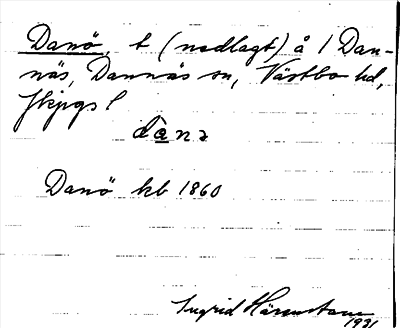 Danö, t (nedlagt) å 1 Dan-
näs, Dannäs sn, Västbo hd,
Jkpgs l
dànə
Danö kb 1860
Ingrid
1931